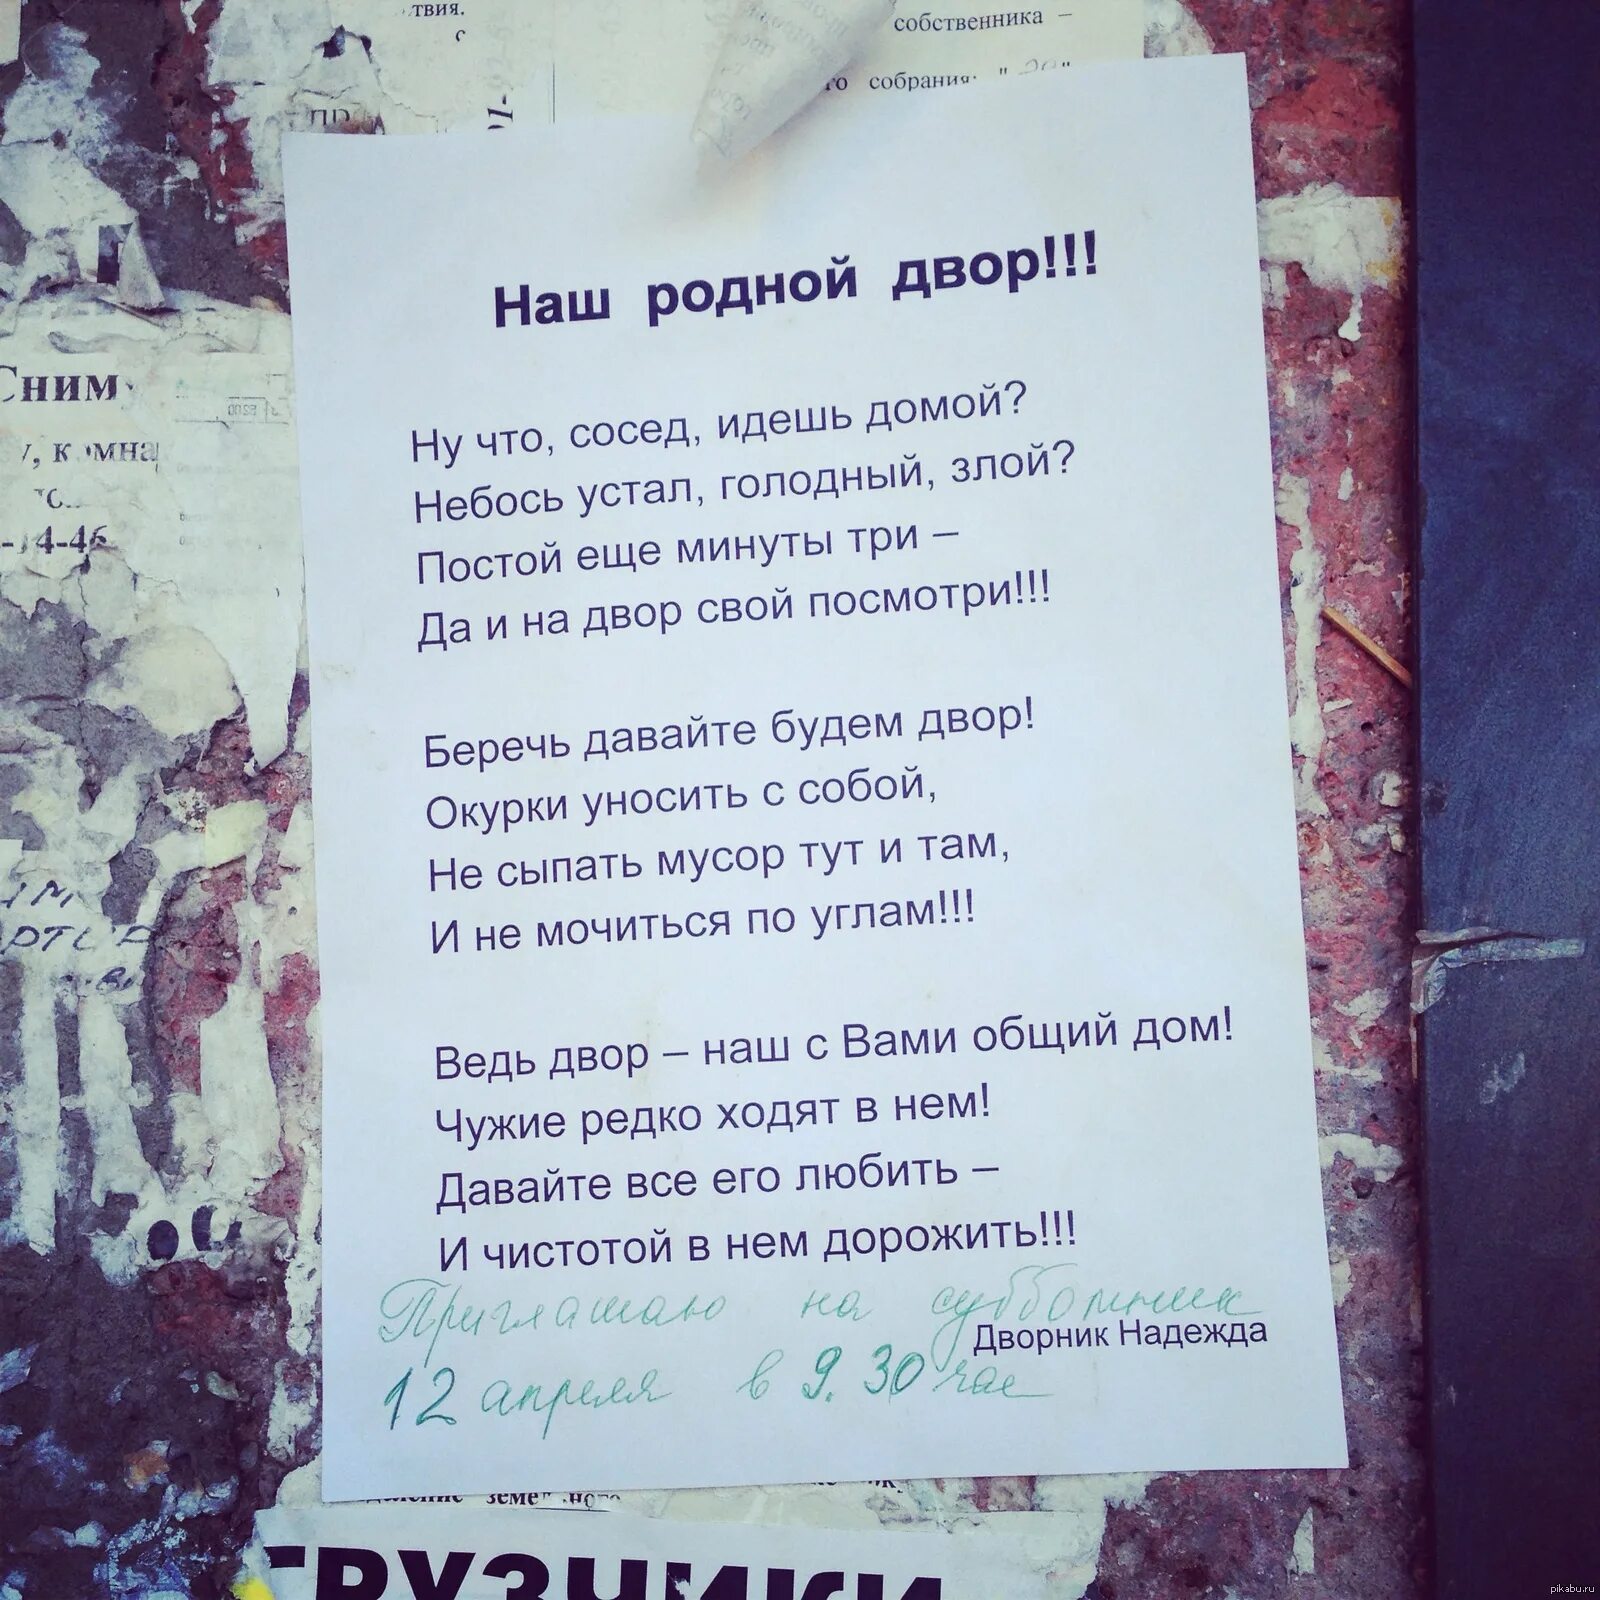 твия.
собственника –
го собрания: "
Сним
-14-46
Наш родной двор!!!
Ну что, сосед, идешь домой?
Небось устал, голодный, злой?
Постой еще минуты три –
Да и на двор свой посмотри!!!
Беречь давайте будем двор!
Окурки уносить с собой,
Не сыпать мусор тут и там,
И не мочиться по углам!!!
Ведь двор – наш с Вами общий дом!
Чужие редко ходят в нем!
Давайте все его любить –
И чистотой в нем дорожить!!!
Приглашаю на субботник
Дворник Надежда
12 апреля в 9.30 час
ГРУЗЧИКИ
pikabu.ru